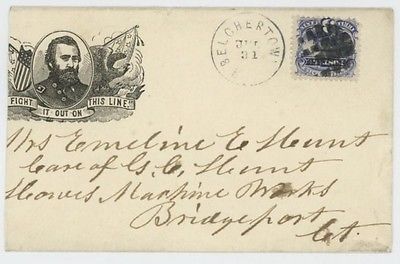 BELCHERTOWN
JUL
31
FIGHT IT OUT ON THIS LINE
Mrs Emeline E Hunt
Care of G. C. Hunt
Howes Machine Works
Bridgeport
Ct.